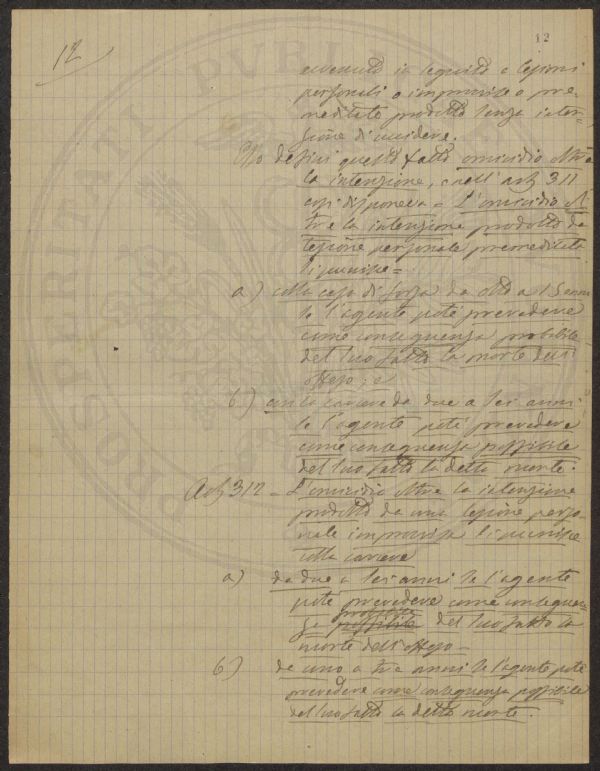 12
12
avvenuto in seguito a lesioni
personali o improvise o pre-
meditate prodotto senza inten-
zione di uccidere.
definì questo fatto omicidio oltre
la intenzione, e nell'art 311
così disponeva = L'omicidio ol-
tre la intenzione prodotto da
lesione personale premeditata
si punisce =
a) colla casa di forza da otto a 15 anni
se l'agente potè prevedere
come conseguenza probabile
del suo fatto la morte dell'
offeso; e
b) con la carcere da due a sei anni
se l'agente potè prevedere
come conseguenza possibile
del suo fatto la detta morte.
Art 312 = L'omicidio oltre la intenzione
prodotto da una lesione perso-
nale improvisa si punisce
colla carcere
a) da due a sei anni se l'agente
potè prevedere come conseguen-
za possibile del suo fatto la
morte dell'offeso =
b) da uno a tre anni se l'agente potè
prevedere come conseguenza possibile
del suo fatto la detta morte.